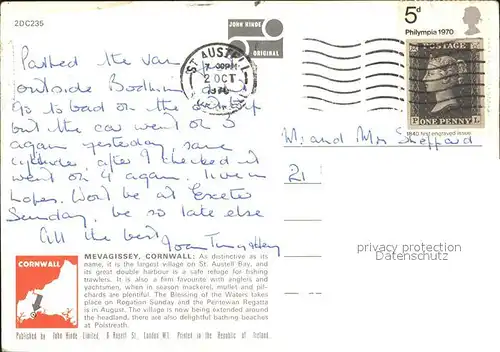 2DC235
JOHN HINDE
ORIGINAL
5d
Philympia 1970
POSTAGE
P ONE PENNY L
1840 first engraved issue
ST AUSTELL
2 OCT
1970
Parked the van
outside Bodmin
go to bad on the
but the car went on 3
again yesterday, same
cylinder, after I checked it
went on 4 again. live in
hopes. Won't be at Exeter
Sunday, be so late else
All the best
Joan
Mr and Mrs Sheppard
21
privacy protection
address removed
CORNWALL
MEVAGISSEY, CORNWALL: As distinctive as its
name, it is the largest village on St. Austell Bay, and
its great double harbour is a safe refuge for fishing
trawlers. It is also a firm favourite with anglers and
yachtsmen, when in season mackerel, mullet and pil-
chards are plentiful. The Blessing of the Waters takes
place on Rogation Sunday and the Pentewan Regatta
is in August. The village is now being extended around
the headland, there are also delightful bathing beaches
at Polstreath.
Published by John Hinde Limited, 6 Regent St., London W1. Printed in the Republic of Ireland